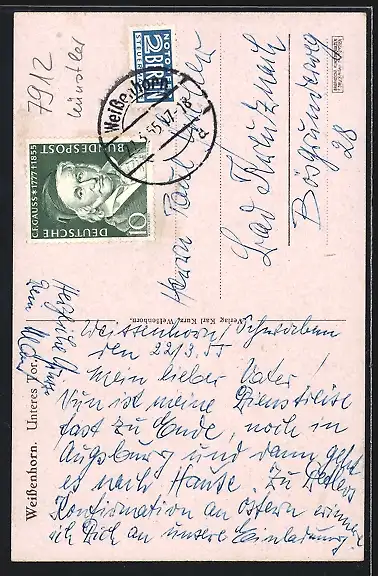 7912
Künstler
NOTOPFER
2 BERLIN
STEUERMARKE
Weißenhorn
55.17-18
d
DEUTSCHE
BUNDESPOST
C.F.GAUSS * 1777 † 1855
10
Herrn Paul
Bad Kreuznach
Bösgrunderweg
28
Verlag Karl Kurz, Weißenhorn.
Weißenhorn. Unteres Tor.
Weissenhorn / Schwaben
den 22/3.55
Mein lieber Vater!
Nun ist meine Dienstreise
fast zu Ende, noch in
Augsburg und dann geht
es nach Hause. Zu
Konfirmation an Ostern erinnere
ich Dich an unsere Einladung.
Herzliche Grüsse
Dein